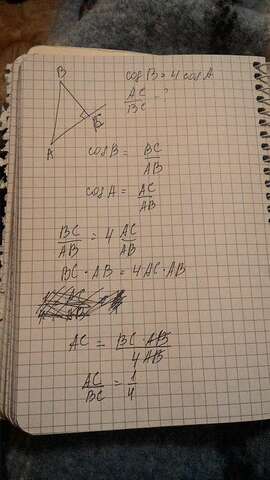 B
cos B = 4 cos A
AC/BC = ?
A
cos B = BC/AB
cos A = AC/AB
BC/AB = 4 AC/AB
BC · AB = 4AC · AB
AC = BC · AB/4AB
AC/BC = 1/4